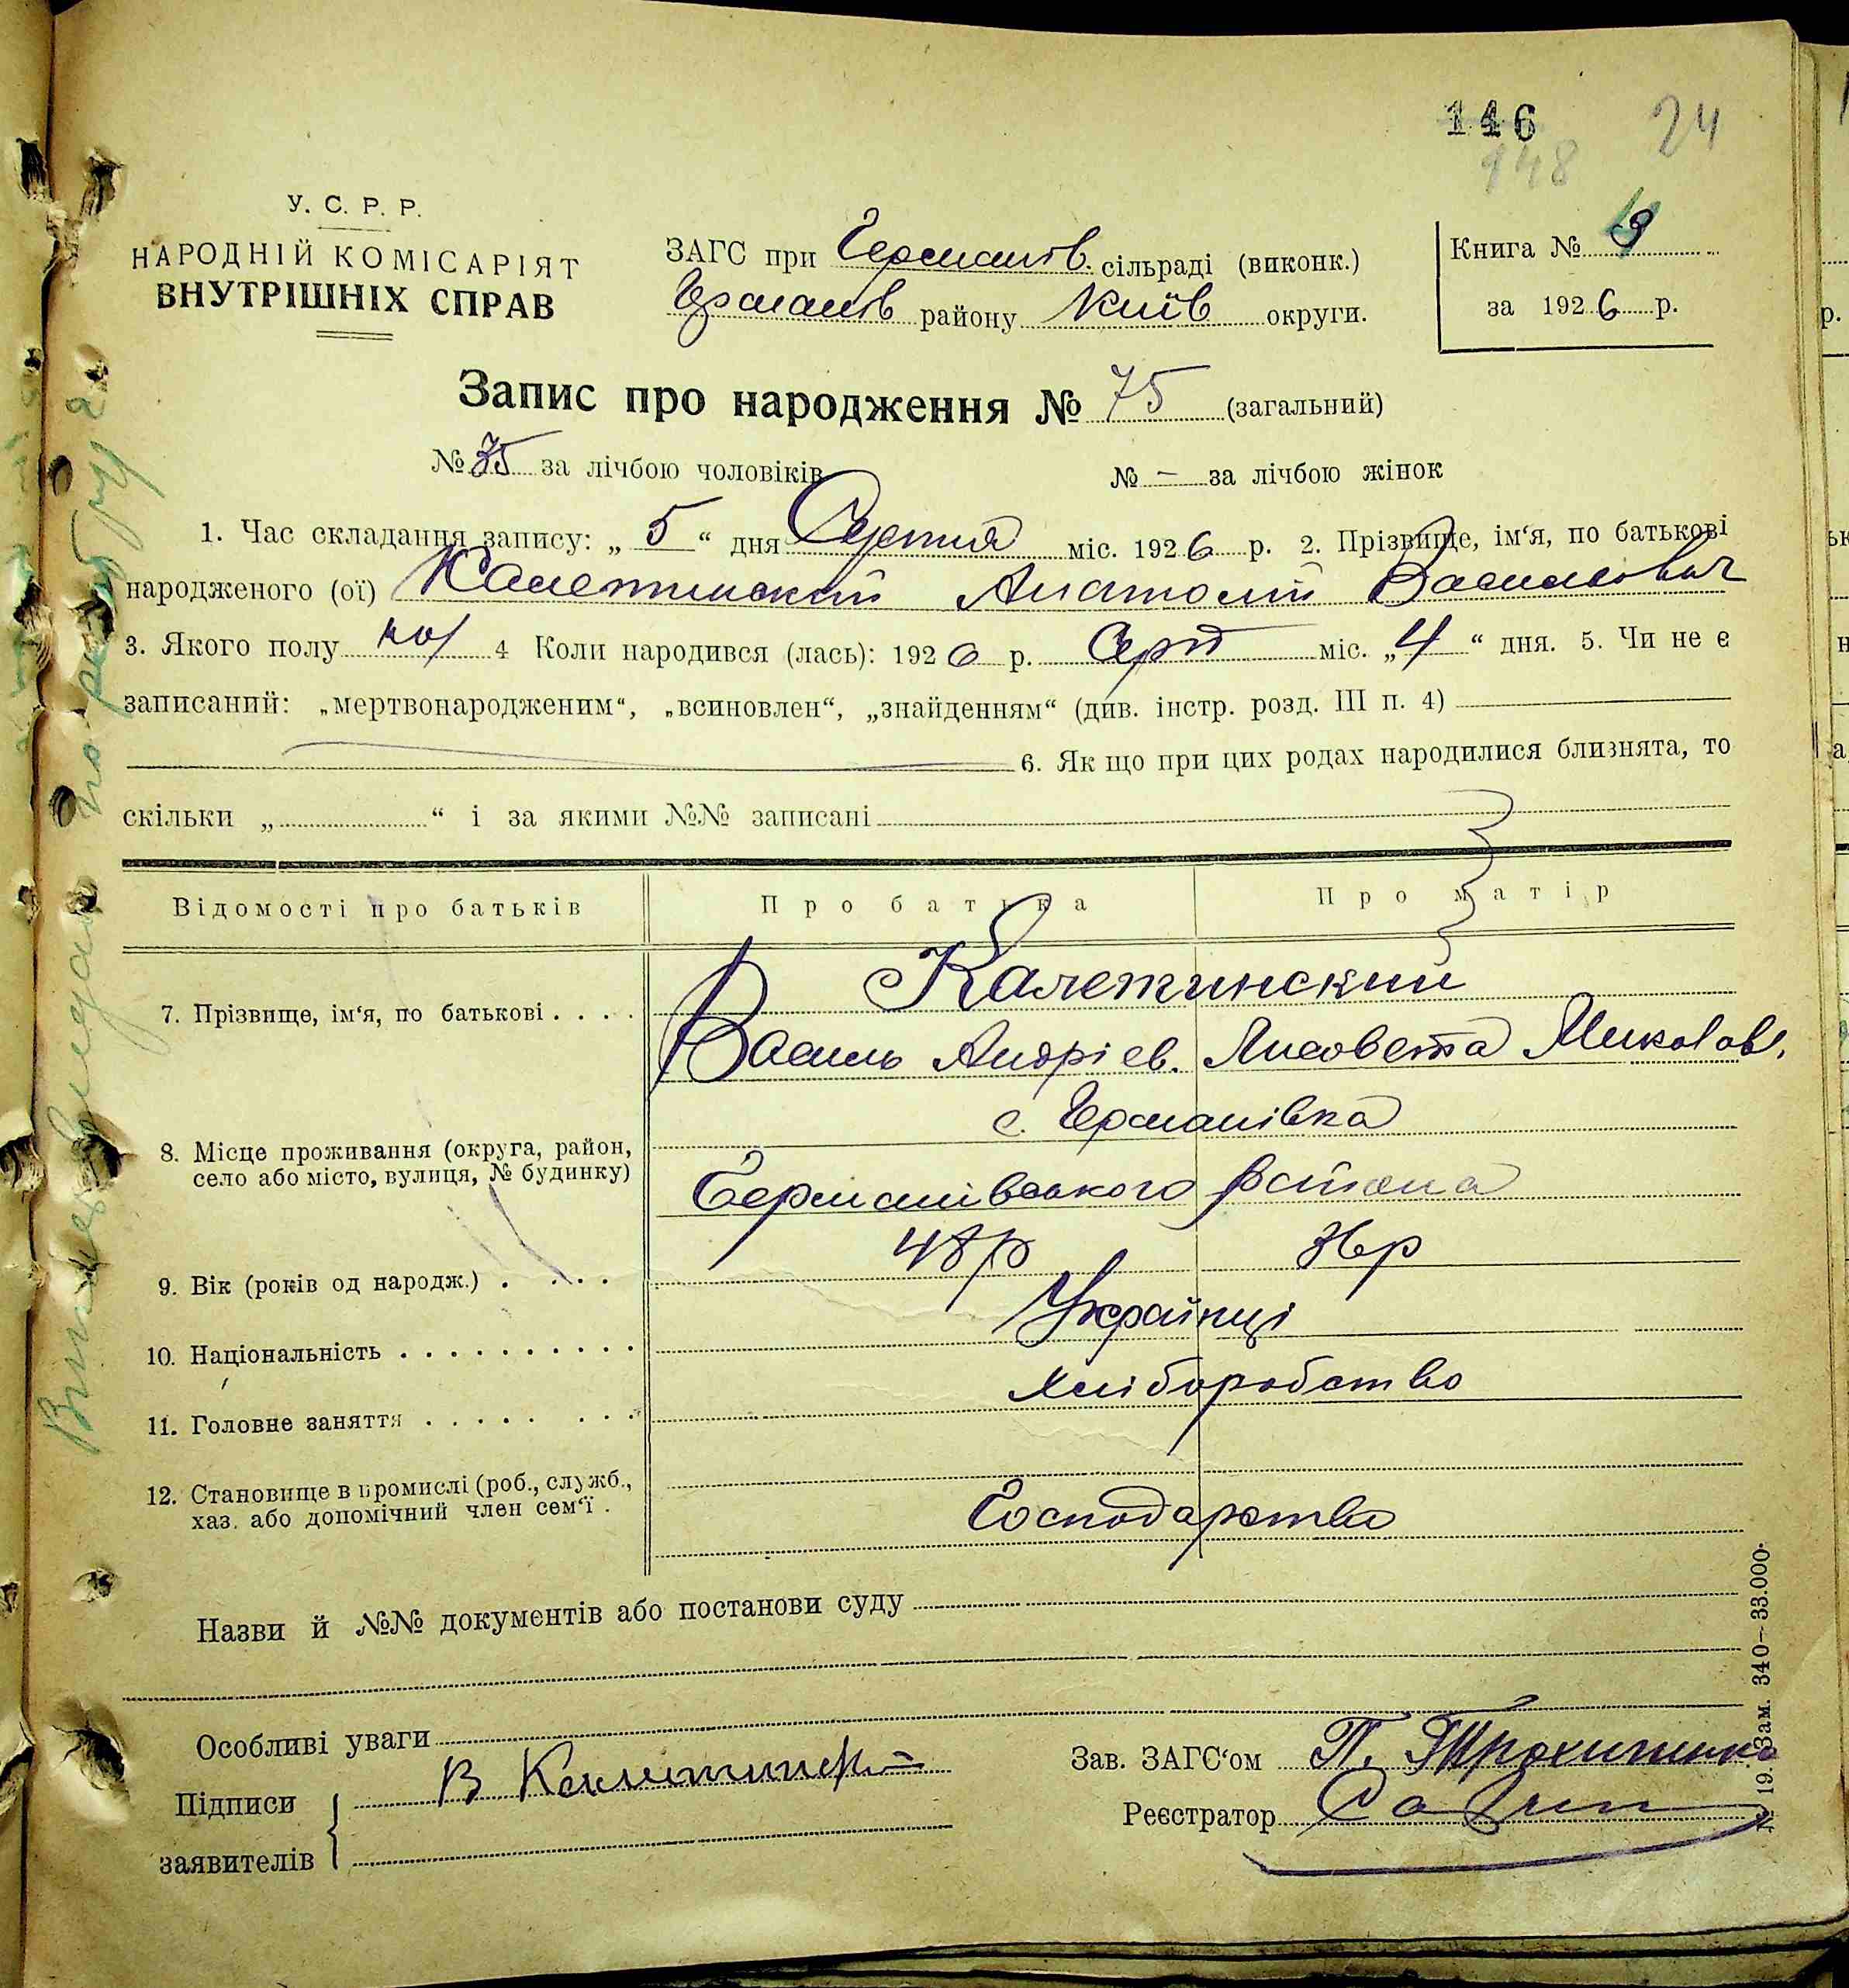 146 24
148
У. С. Р. Р.
НАРОДНІЙ КОМІСАРІЯТ
ВНУТРІШНІХ СПРАВ
ЗАГС при Германів. сільраді (виконк.)
Германів району Київ округи.
Книга № 9
за 1926 р.
Запис про народження № 75 (загальний)
№ 75 за лічбою чоловіків № — за лічбою жінок
1. Час складання запису: „ 5 “ дня Серпня міс. 1926 р. 2. Прізвище, ім‘я, по батькові
народженого (ої) Калетинский Анатолій Василович
3. Якого полу чол 4 Коли народився (лась): 1926 р. Серп міс. „ 4 “ дня. 5. Чи не є
записаний: „мертвонародженим“, „всиновлен“, „знайденням“ (див. інстр. розд. III п. 4)
6. Як що при цих родах народилися близнята, то
скільки „ “ і за якими №№ записані
Відомості про батьків Про батька Про матір
7. Прізвище, ім‘я, по батькові . . . .
Калетинский
Василь Андріев. Лисовета Миколов.
8. Місце проживання (округа, район,
село або місто, вулиця, № будинку)
с. Германівка
Германівського району
9. Вік (років од народж.) . . . . 48 р 36 р
10. Національність . . . . . . . . . . Українці
11. Головне заняття . . . . . . . . Хліборобство
12. Становище в промислі (роб., служб.,
хаз. або допомічний член сем‘ї .
Господарство
Назви й №№ документів або постанови суду
Особливі уваги
Підписи
заявителів
В Калетинский
Зав. ЗАГС‘ом П. Трохименко
Реєстратор
№ 19. Зам. 340–33.000.